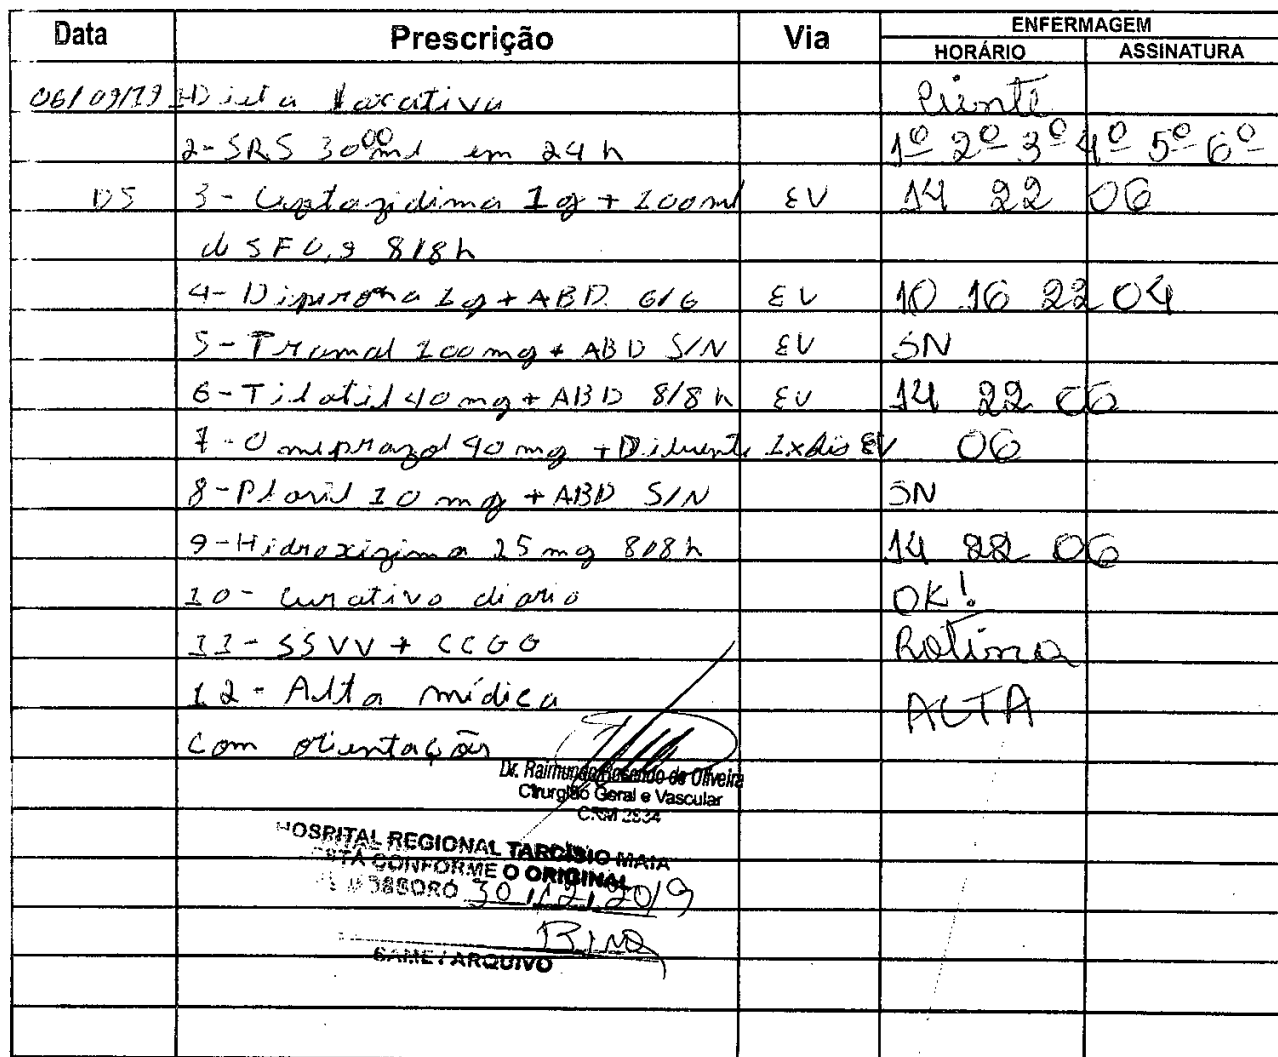 Data Prescrição Via ENFERMAGEM
HORÁRIO ASSINATURA
06/09/19 1-Dieta laxativa Ciente
2-SRS 3000ml em 24 h 1º 2º 3º 4º 5º 6º
D5 3-Ceftazidima 1g + 100ml EV 14 22 06
de SF 0,9 8/8h
4-Dipirona 1g + ABD. 6/6 EV 10 16 22 04
5-Tramal 100mg + ABD S/N EV SN
6-Tilatil 40mg + ABD 8/8 h EV 14 22 06
7-Omeprazol 40mg + Diluente 1xdia EV 06
8-Plasil 10mg + ABD S/N SN
9-Hidroxizina 25mg 8/8h 14 22 06
10-Curativo diario OK!
11-SSVV + CCGG Rotina
12-Alta médica ALTA
com orientações
Dr. Raimundo Rosendo de Oliveira
Cirurgião Geral e Vascular
CRM 2834
HOSPITAL REGIONAL TARCISIO MAIA
ESTÁ CONFORME O ORIGINAL
MOSSORÓ 30/12/2019
SAME / ARQUIVO